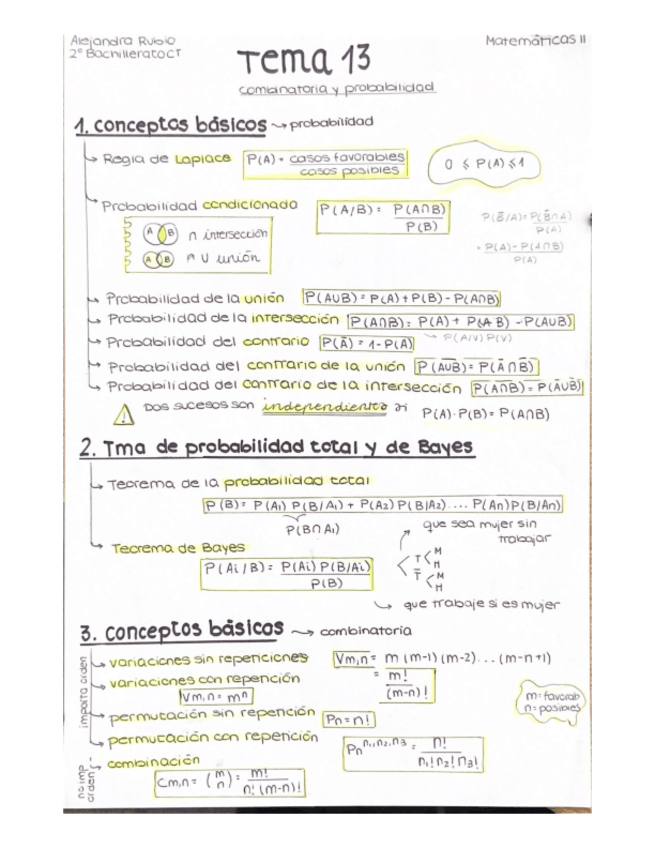 Alejandra Rubio
2º Bachillerato CT
Matemáticas II
Tema 13
combinatoria y probabilidad
1. conceptos básicos → probabilidad
Regla de Laplace P(A) = casos favorables / casos posibles
0 ≤ P(A) ≤ 1
Probabilidad condicionada P(A/B) = P(A∩B) / P(B)
P(B̄/A) = P(B̄∩A) / P(A)
= P(A) - P(A∩B) / P(A)
A B ∩ intersección
A B U unión
Probabilidad de la unión P(AUB) = P(A) + P(B) - P(A∩B)
Probabilidad de la intersección P(A∩B) = P(A) + P(B) - P(AUB)
Probabilidad del contrario P(Ā) = 1 - P(A)
P(A/V) P(V)
Probabilidad del contrario de la unión P(A̅U̅B̅) = P(Ā∩B̄)
Probabilidad del contrario de la intersección P(A̅∩̅B̅) = P(ĀUB̄)
Dos sucesos son independientes si P(A)·P(B) = P(A∩B)
2. Tma de probabilidad total y de Bayes
Teorema de la probabilidad total
P(B) = P(A₁) P(B/A₁) + P(A₂) P(B/A₂) .... P(An) P(B/An)
P(B∩A₁)
que sea mujer sin
trabajar
Teorema de Bayes
P(Ai/B) = P(Ai) P(B/Ai) / P(B)
T < M H
T̄ < M H
que trabaje si es mujer
3. conceptos básicos → combinatoria
importa orden
variaciones sin repenciones Vm,n = m (m-1) (m-2) ... (m-n+1)
= m! / (m-n)!
variaciones con repención
Vm,n = mⁿ
m = favorab
n = posibles
permutación sin repención Pn = n!
permutación con repención Pn^n₁,n₂,n₃ = n! / n₁! n₂! n₃!
no imp
orden
combinación
Cm,n = (m n) = m! / n! (m-n)!